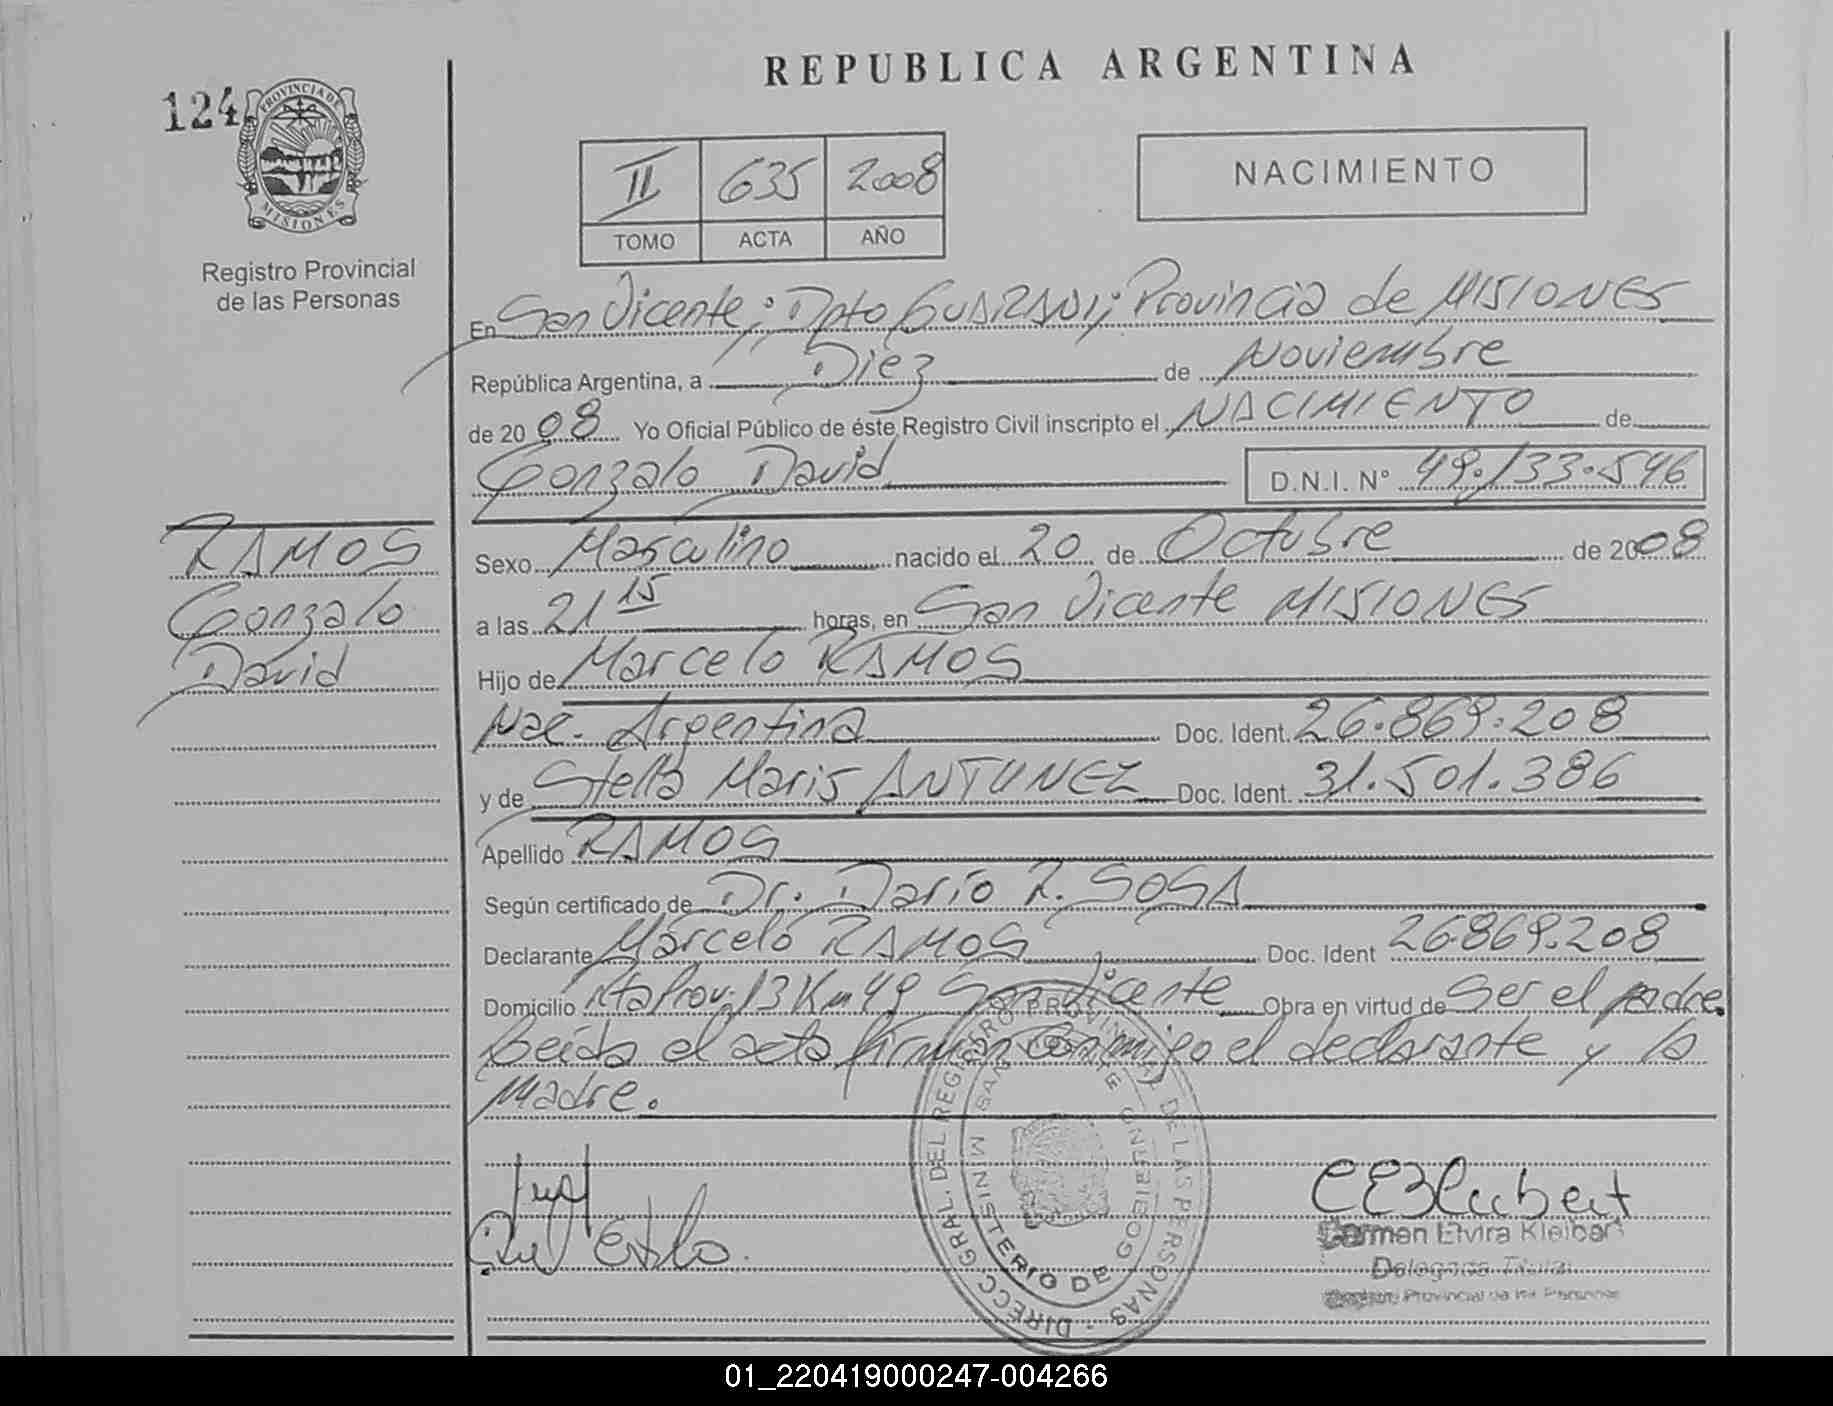 REPUBLICA ARGENTINA
124
PROVINCIA DE
MISIONES
Registro Provincial
de las Personas
II 635 2008
TOMO ACTA AÑO
NACIMIENTO
En San Vicente; Dpto GUARANI; Provincia de MISIONES
República Argentina, a Diez de Noviembre
de 2008 Yo Oficial Público de éste Registro Civil inscripto el NACIMIENTO de
Gonzalo David D.N.I. Nº 49.133.546
RAMOS
Gonzalo
David
Sexo Masculino nacido el 20 de Octubre de 2008
a las 21 15 horas, en San Vicente MISIONES
Hijo de Marcelo RAMOS
Nac. Argentina Doc. Ident. 26.869.208
y de Stella Maris ANTUNEZ Doc. Ident. 31.501.386
Apellido RAMOS
Según certificado de Dr. Darío R. SOSA
Declarante Marcelo RAMOS Doc. Ident 26.869.208
Domicilio Rta Prov. 13 Km 49 San Vicente Obra en virtud de Ser el padre.
Leída el acta firman conmigo el declarante y la
Madre.
DIRECC. GRAL. DEL REGISTRO PROVINCIAL DE LAS PERSONAS
MINISTERIO DE GOBIERNO
SAN VICENTE
Carmen Elvira Kleibert
Delegada Titular
Registro Provincial de las Personas
01_220419000247-004266